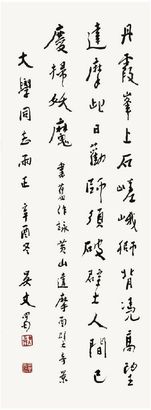 丹霞峯上石嵯峨獅背凭高望
達摩此日勸師須破壁土人間已
慶掃妖魔 書舊作詠黃山達摩面壁奇景
大學同志雨正 辛酉冬 吳丈蜀